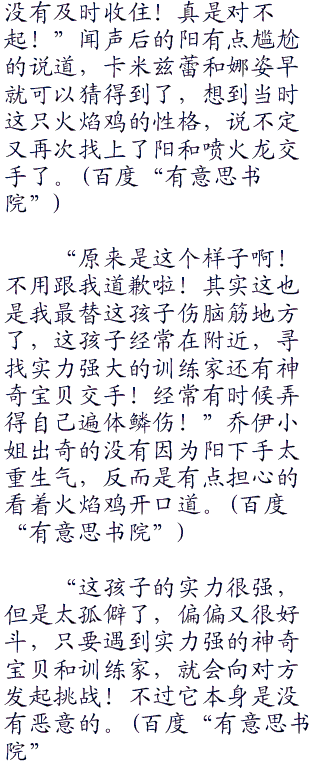 没有及时收住！真是对不
起！”闻声后的阳有点尴尬
的说道，卡米兹蕾和娜姿早
就可以猜得到了，想到当时
这只火焰鸡的性格，说不定
又再次找上了阳和喷火龙交
手了。(百度“有意思书
院”)
“原来是这个样子啊！
不用跟我道歉啦！其实这也
是我最替这孩子伤脑筋地方
了，这孩子经常在附近，寻
找实力强大的训练家还有神
奇宝贝交手！经常有时候弄
得自己遍体鳞伤！”乔伊小
姐出奇的没有因为阳下手太
重生气，反而是有点担心的
看着火焰鸡开口道。(百度
“有意思书院”)
“这孩子的实力很强，
但是太孤僻了，偏偏又很好
斗，只要遇到实力强的神奇
宝贝和训练家，就会向对方
发起挑战！不过它本身是没
有恶意的。(百度“有意思书
院”